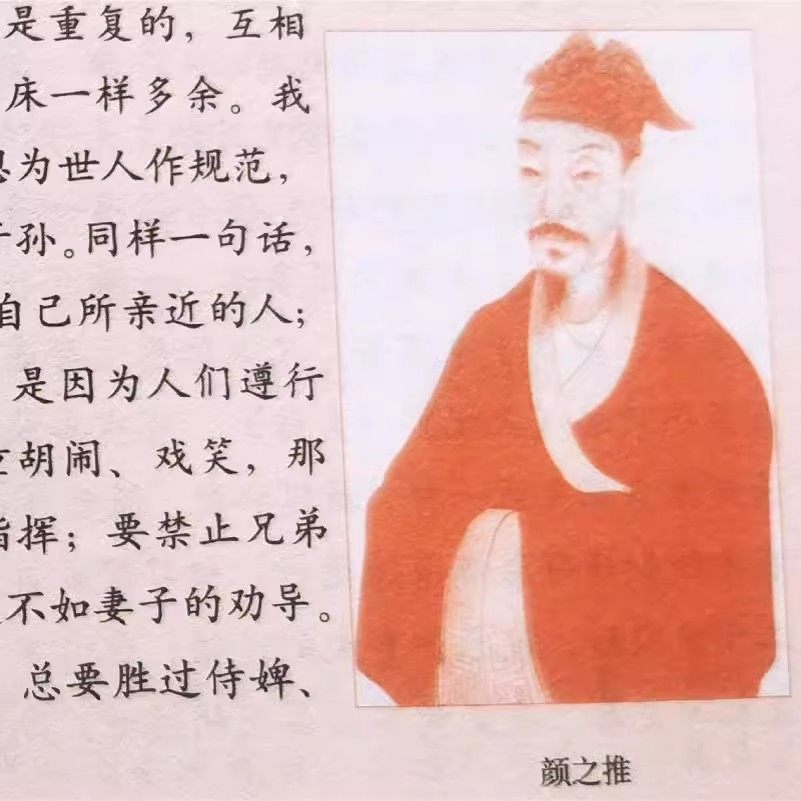 是重复的，互相
床一样多余。我
为世人作规范，
孙。同样一句话，
自己所亲近的人；
是因为人们遵行
胡闹、戏笑，那
指挥；要禁止兄弟
不如妻子的劝导。
总要胜过侍婢、
颜之推